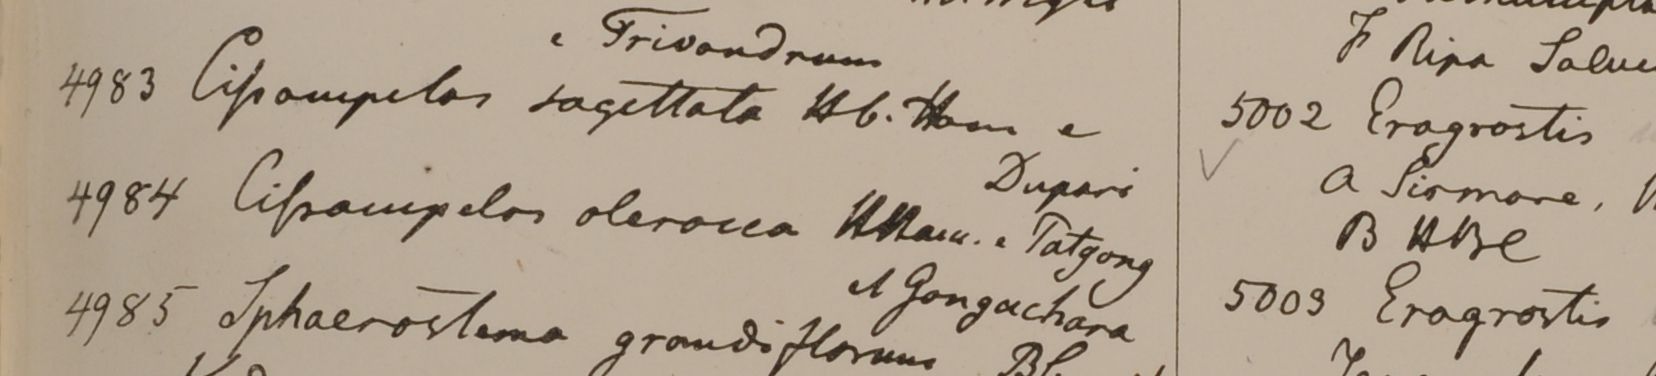 e Trivandrum
4983 Cißampelos sagettata Hb. Ham e
Dupari
4984 Cißampelos oleracea HHam. e Tatgong
et Gongachara
4985 Sphaerostema grandiflorum Bl.
F Ripa
5002 Eragrostis
A Sirmore,
B HBC
5003 Eragrostis